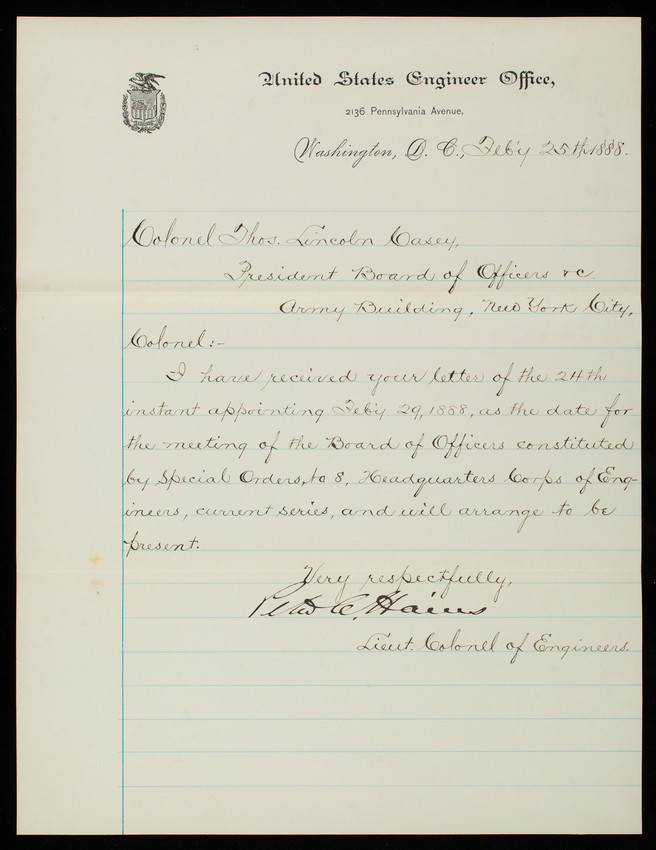 United States Engineer Office,
2136 Pennsylvania Avenue,
Washington, D. C., Feb'y 25th 1888.
Colonel Thos. Lincoln Casey,
President Board of Officers &c
Army Building, New York City.
Colonel:-
I have received your letter of the 24th
instant appointing Feb'y 29, 1888, as the date for
the meeting of the Board of Officers constituted
by Special Orders, No 8, Headquarters Corps of Eng-
ineers, current series, and will arrange to be
present.
Very respectfully,
Peter C. Hains
Lieut. Colonel of Engineers.